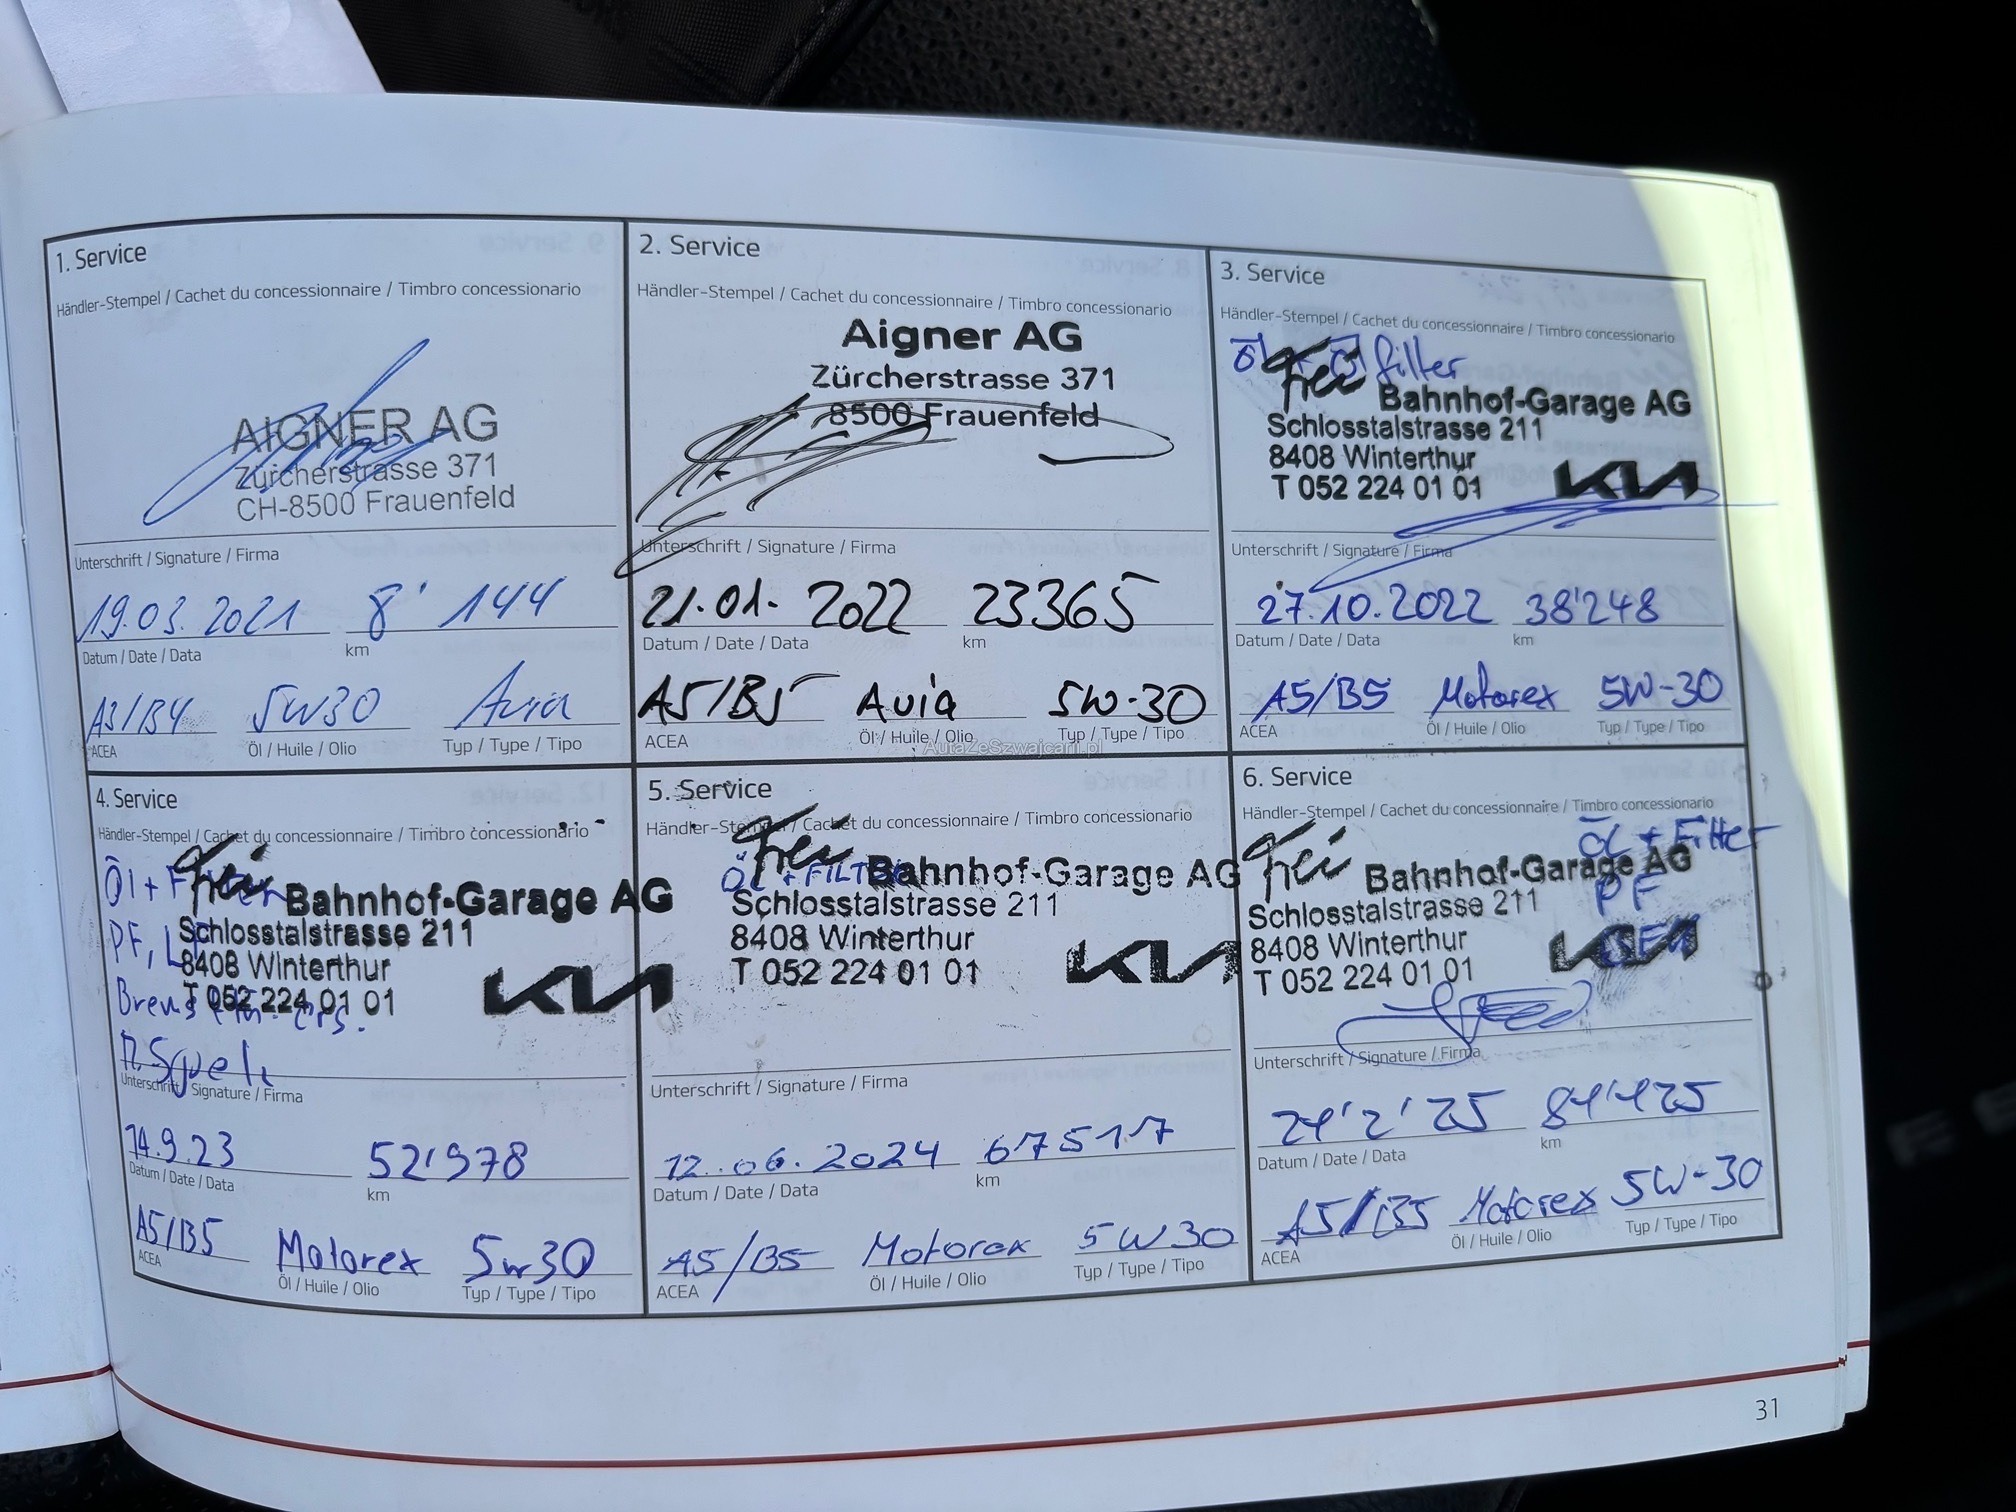 1. Service
Händler-Stempel / Cachet du concessionnaire / Timbro concessionario
AIGNER AG
Zürcherstrasse 371
CH-8500 Frauenfeld
Unterschrift / Signature / Firma
19.03.2021 8'144
Datum / Date / Data km
A3/B4 5W30 Avia
ACEA Öl / Huile / Olio Typ / Type / Tipo
2. Service
Händler-Stempel / Cachet du concessionnaire / Timbro concessionario
Aigner AG
Zürcherstrasse 371
8500 Frauenfeld
Unterschrift / Signature / Firma
21.01.2022 23365
Datum / Date / Data km
A5/B5 Avia 5W-30
ACEA Öl / Huile / Olio Typ / Type / Tipo
AutaZeSzwajcarii.pl
3. Service
Händler-Stempel / Cachet du concessionnaire / Timbro concessionario
Öl + Ölfilter
Frei Bahnhof-Garage AG
Schlosstalstrasse 211
8408 Winterthur
T 052 224 01 01 KIA
Unterschrift / Signature / Firma
27.10.2022 38'248
Datum / Date / Data km
A5/B5 Motorex 5W-30
ACEA Öl / Huile / Olio Typ / Type / Tipo
4. Service
Händler-Stempel / Cachet du concessionnaire / Timbro concessionario
Öl + Filter
Frei Bahnhof-Garage AG
PF,
Schlosstalstrasse 211
8408 Winterthur
T 052 224 01 01 KIA
Unterschrift / Signature / Firma
14.9.23 52'978
Datum / Date / Data km
A5/B5 Motorex 5w30
ACEA Öl / Huile / Olio Typ / Type / Tipo
5. Service
Händler-Stempel / Cachet du concessionnaire / Timbro concessionario
ÖL + FILTER
Frei Bahnhof-Garage AG
Schlosstalstrasse 211
8408 Winterthur
T 052 224 01 01 KIA
Unterschrift / Signature / Firma
12.06.2024 67517
Datum / Date / Data km
A5/B5 Motorex 5W30
ACEA Öl / Huile / Olio Typ / Type / Tipo
6. Service
Händler-Stempel / Cachet du concessionnaire / Timbro concessionario
ÖL + Filter
Frei Bahnhof-Garage AG
PF
Schlosstalstrasse 211
8408 Winterthur
T 052 224 01 01 KIA
Unterschrift / Signature / Firma
24'2'25 84'425
Datum / Date / Data km
A5/B5 Motorex 5W-30
ACEA Öl / Huile / Olio Typ / Type / Tipo
31